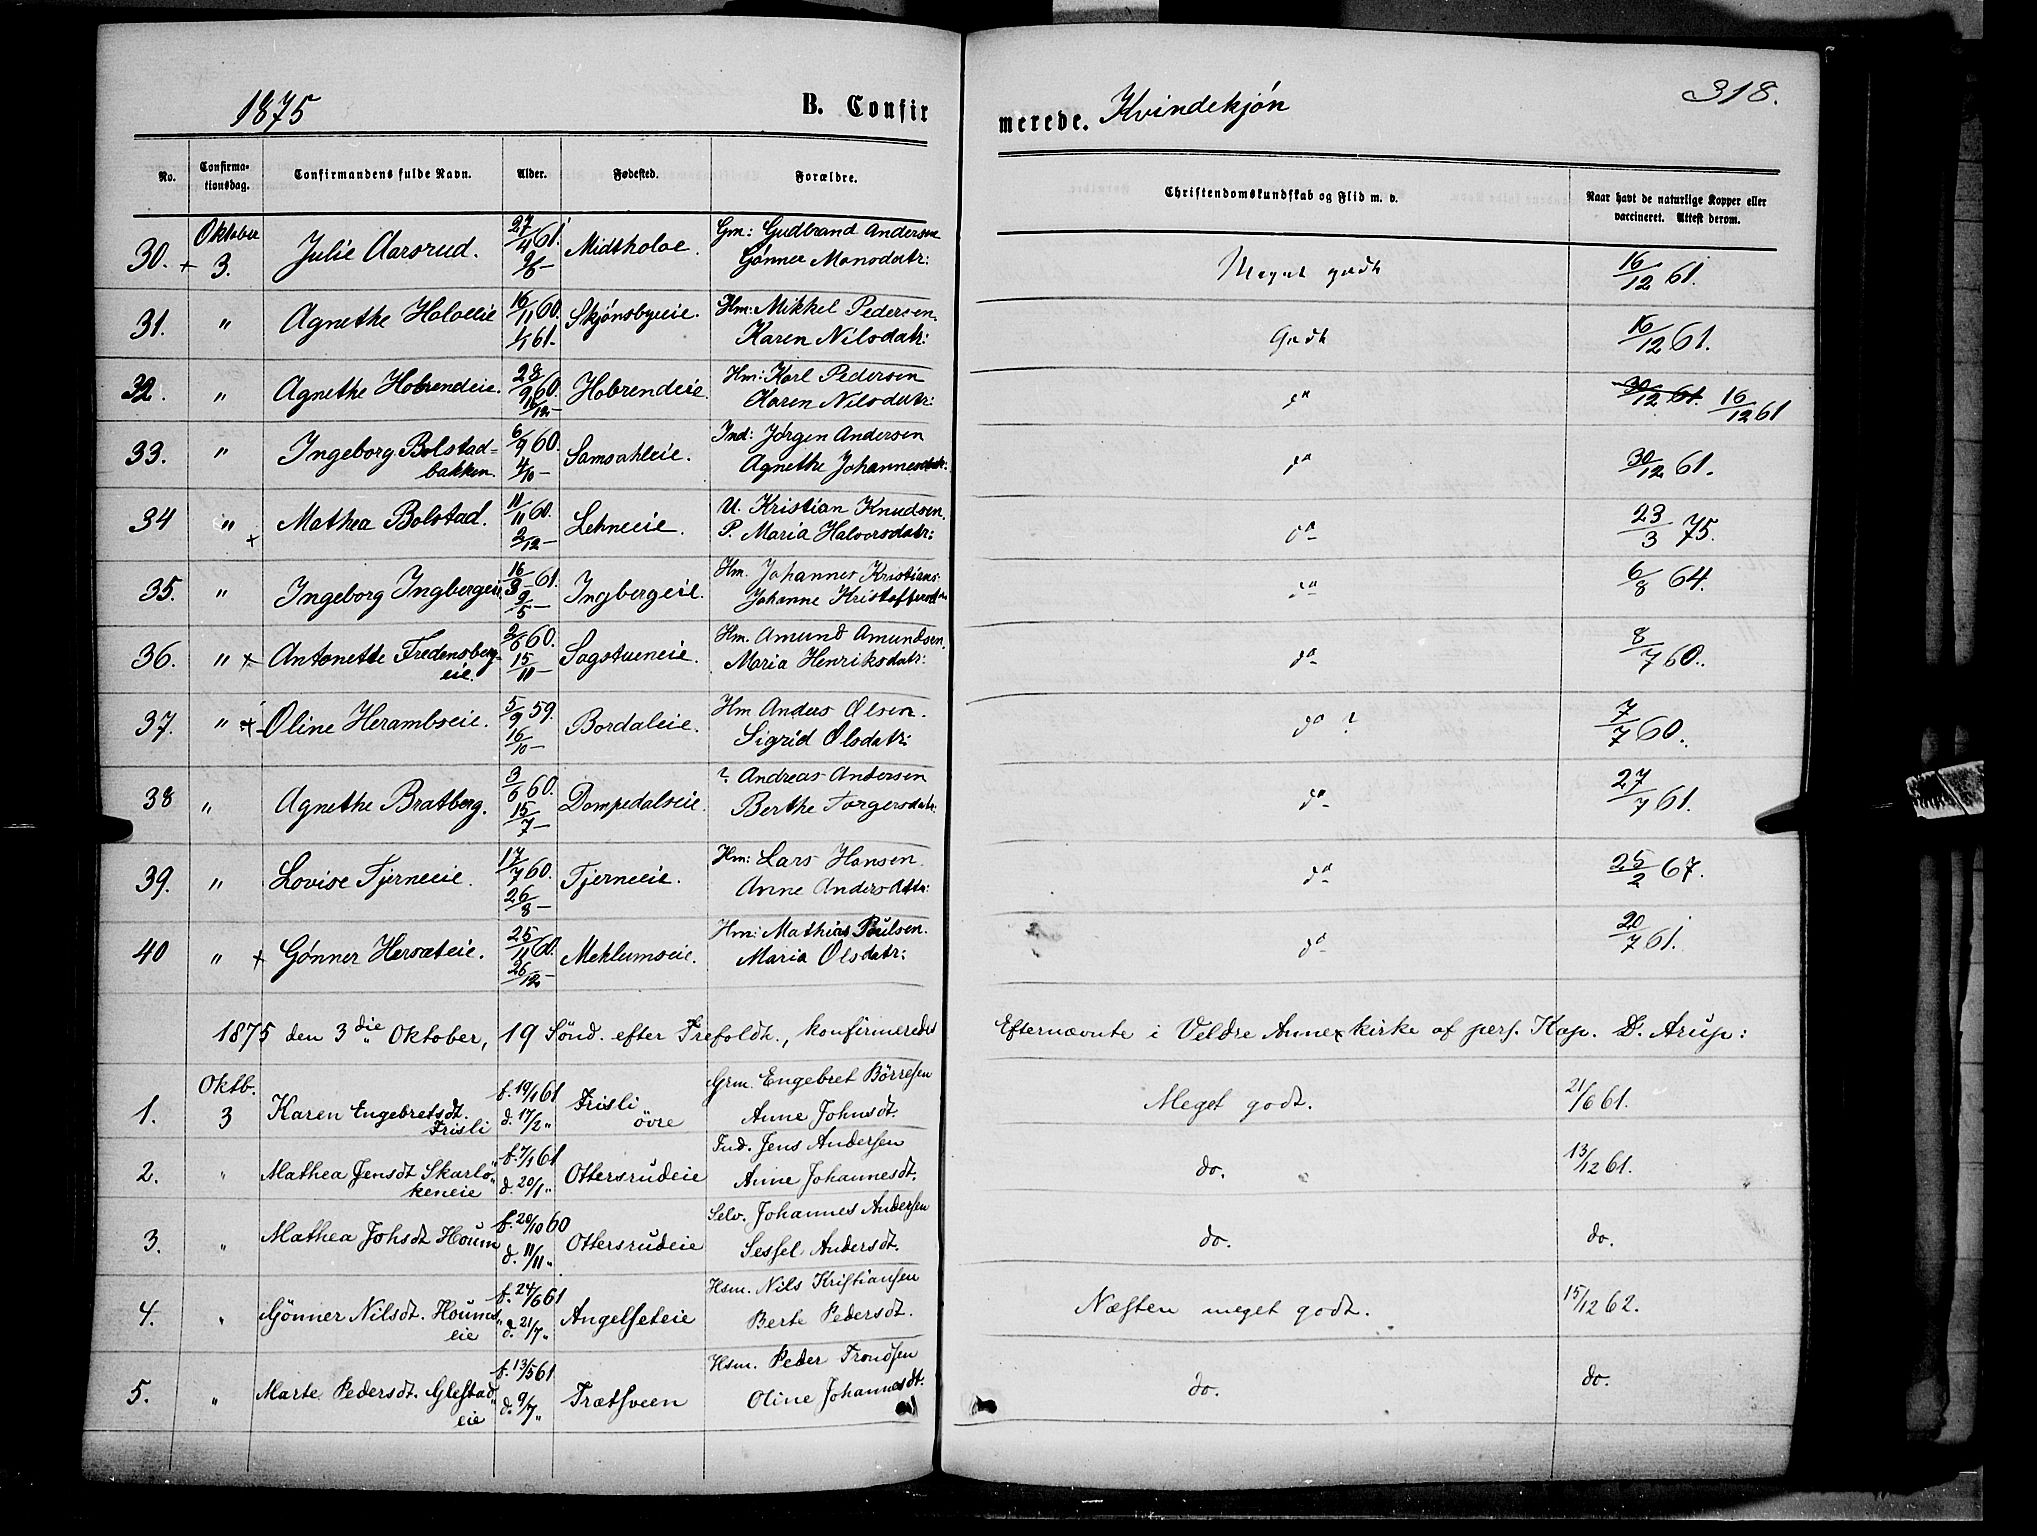 1875
B. Confirmerede. Kvindekjøn
318.
No. | Confirmationsdag. | Confirmandens fulde Navn. | Alder. | Fødested. | Forældre. | Christendomskundskab og Flid m. v. | Naar havt de naturlige Kopper eller vaccineret. Attest derom.
30. + Oktober 3. Julie Aarsrud. 27/4 61. Midtholoe. Gm: Gudbrand Andersen Gønner Monsdatr: Meget godt 16/12 61.
31. " Agnethe Holoeeie 16/11 60. 1/1 61- Skjønsbyeie. Hm: Mikkel Pedersen. Karen Nilsdatr: Godt 16/12 61.
32. " Agnethe Hobrendeie. 28/9 60. Hobrendeie. Hm: Karl Pedersen Karen Nilsdatr: do 30/12 61. 16/12 61
33. " Ingeborg Bolstad= bakken. 6/9 60. 4/10 - Samsahleie. Ind: Jørgen Andersen Agnethe Johannesdatr: do 30/12 61.
34 " + Mathea Bolstad. 11/11 60. 2/12 - Lehneeie. U. Kristian Knudsen. P. Maria Halvorsdatr: do 23/3 75.
35. " Ingeborg Ingbergeie. 16/3 61. 9/5 - Ingbergeie. Hm. Johannes Kristians: Johanne Kristoffersdtr do 6/8 64.
36. " + Antonette Fredensberg- eie. 60. 15/11 - Sagstueneie. Hm. Amund Amundsen. Maria Henriksdatr: do 8/7 60.
37. " + Oline Herambseie. 5/9 59. 16/10 - Bordaleie. Hm Anders Olsen. Sigrid Olsdatr: do ? 7/7 60.
38 " Agnethe Bratberg. 3/6 60. 15/7 - Dompedalseie. ? Andreas Andersen Berthe Torgersdatr: do 27/7 61.
39. " Lovise Tjerneeie. 17/7 60. 26/8 - Tjerneeie. Hm: Lars Hansen. Anne Andersdttr: do 25/2 67.
40 " + Gønner Hersæteie. 25/11 60. 26/12 - Mehlumseie. Hm: Mathias Poulsen. Maria Olsdatr: do 20/7 61.
1875 den 3die Oktober, 19 Sønd. efter Trefoldt., konfirmeredes Efternævnte i Veldre Annexkirke af pers. Kap. D. Arup:
1. Oktb. 3 Karen Engebretsdt. Frisli f. 19/1 61 d. 17/2 " Frisli øvre Grm. Engebret Börresen Anne Johnsdt. Meget godt. 21/6 61.
2. " Mathea Jensdt Skarlö" keneie f. 7/1 61 d. 20/1 " Ottersrudeie Ind. Jens Andersen Anne Johannesdt. do. 13/12 61.
3. " Mathea Johsdt Houm f. 20/10 60 d. 11/11 " Ottersrudeie Selv. Johannes Andersen Sessel Andersdt. do. do.
4. " Gönner Nilsdt. Houms" eie f. 24/6 61 d. 21/7 " Angelseteie Hsm. Nils Kristiansen Berte Pedersdt. Næsten meget godt. 15/12 62.
5. " Marte Pedersdt. Glestad" eie f. 13/5 61 d. 9/7 " Trætsveen Hsm. Peder Trondsen Oline Johannesdt. do. do.